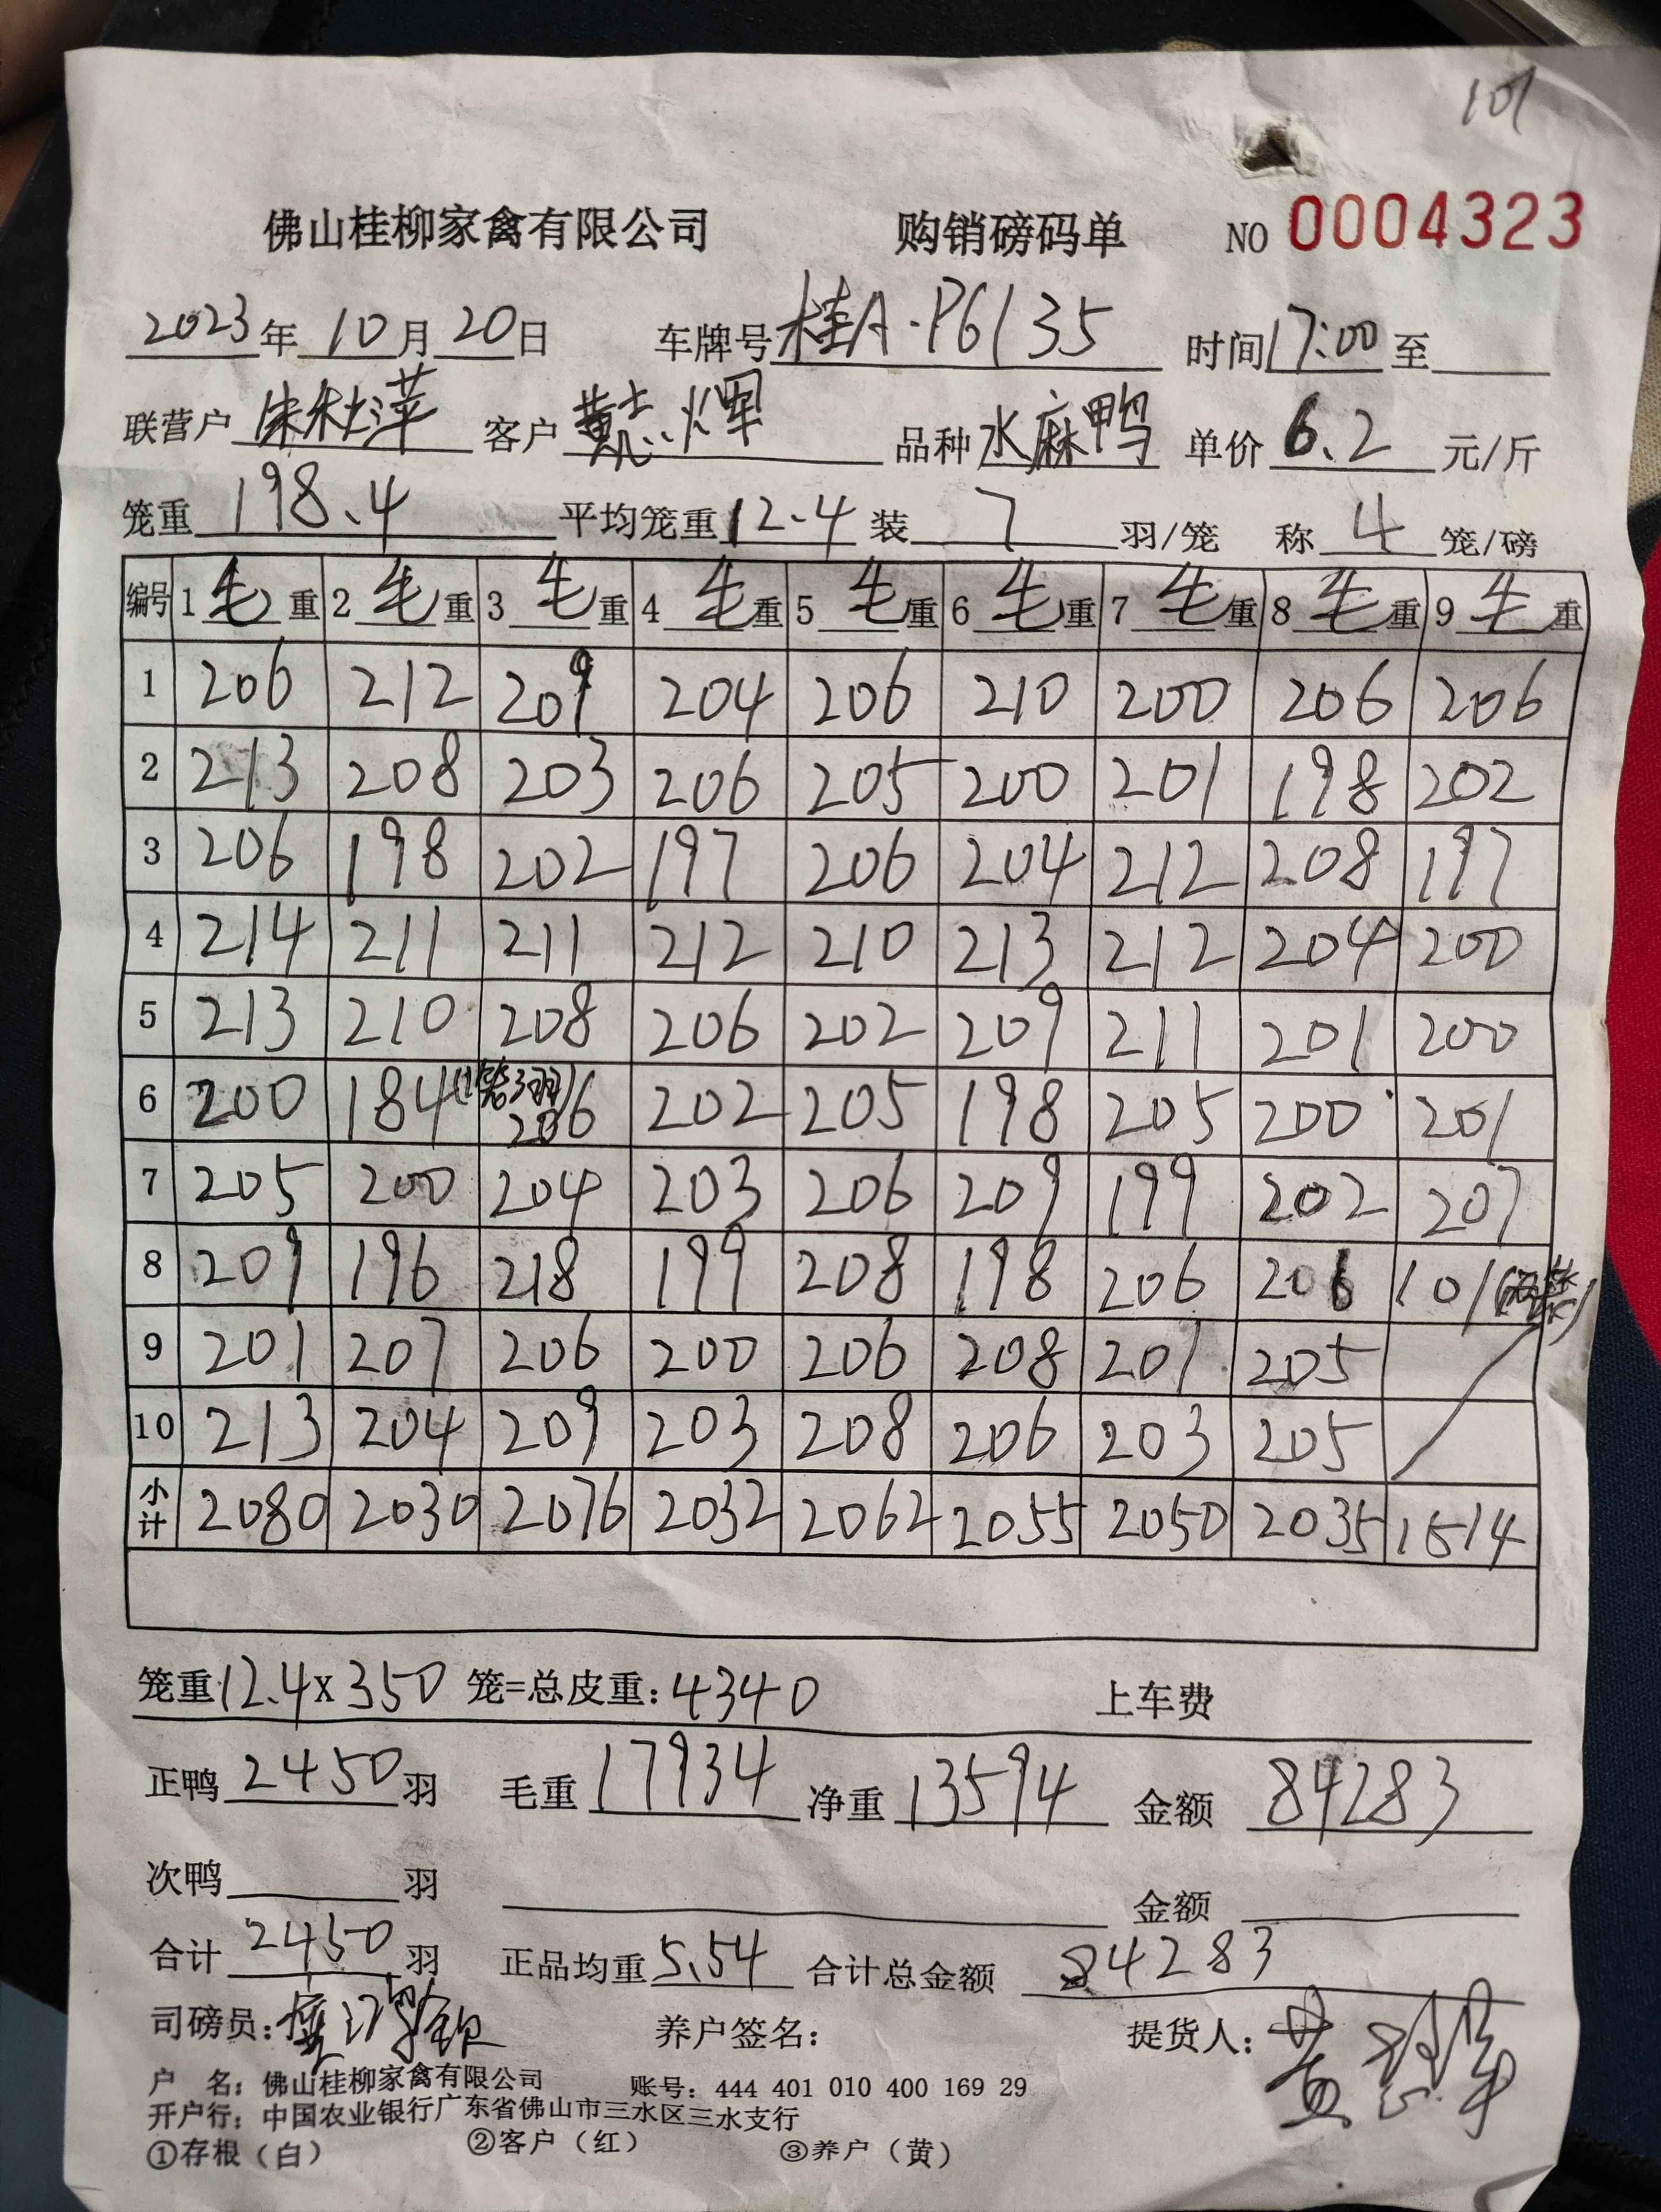 101
佛山桂柳家禽有限公司 购销磅码单 NO 0004323
2023年10月20日 车牌号桂A·P6135 时间17:00至
联营户 朱杜萍 客户 黄志辉 品种水麻鸭 单价6.2元/斤
笼重198.4 平均笼重12.4装7羽/笼 称4笼/磅
编号 1毛重 2毛重 3毛重 4毛重 5毛重 6毛重 7毛重 8毛重 9毛重
1 206 212 209 204 206 210 200 206 206
2 213 208 203 206 205 200 201 198 202
3 206 198 202 197 206 204 212 208 197
4 214 211 211 212 210 213 212 204 200
5 213 210 208 206 202 209 211 201 200
6 200 184(1笼3羽) 206 202 205 198 205 200 201
7 205 200 204 203 206 209 199 202 207
8 209 196 218 199 208 198 206 206 101(两笼)
9 201 207 206 200 206 208 201 205
10 213 204 209 203 208 206 203 205
小计 2080 2030 2076 2032 2062 2055 2050 2035 1514
笼重12.4x350 笼=总皮重:4340 上车费
正鸭2450羽 毛重17934 净重13594 金额84283
次鸭 羽 金额
合计2450羽 正品均重5.54 合计总金额84283
司磅员: 养户签名: 提货人:黄志辉
户 名: 佛山桂柳家禽有限公司 账号: 444 401 010 400 169 29
开户行: 中国农业银行广东省佛山市三水区三水支行
①存根(白) ②客户(红) ③养户(黄)